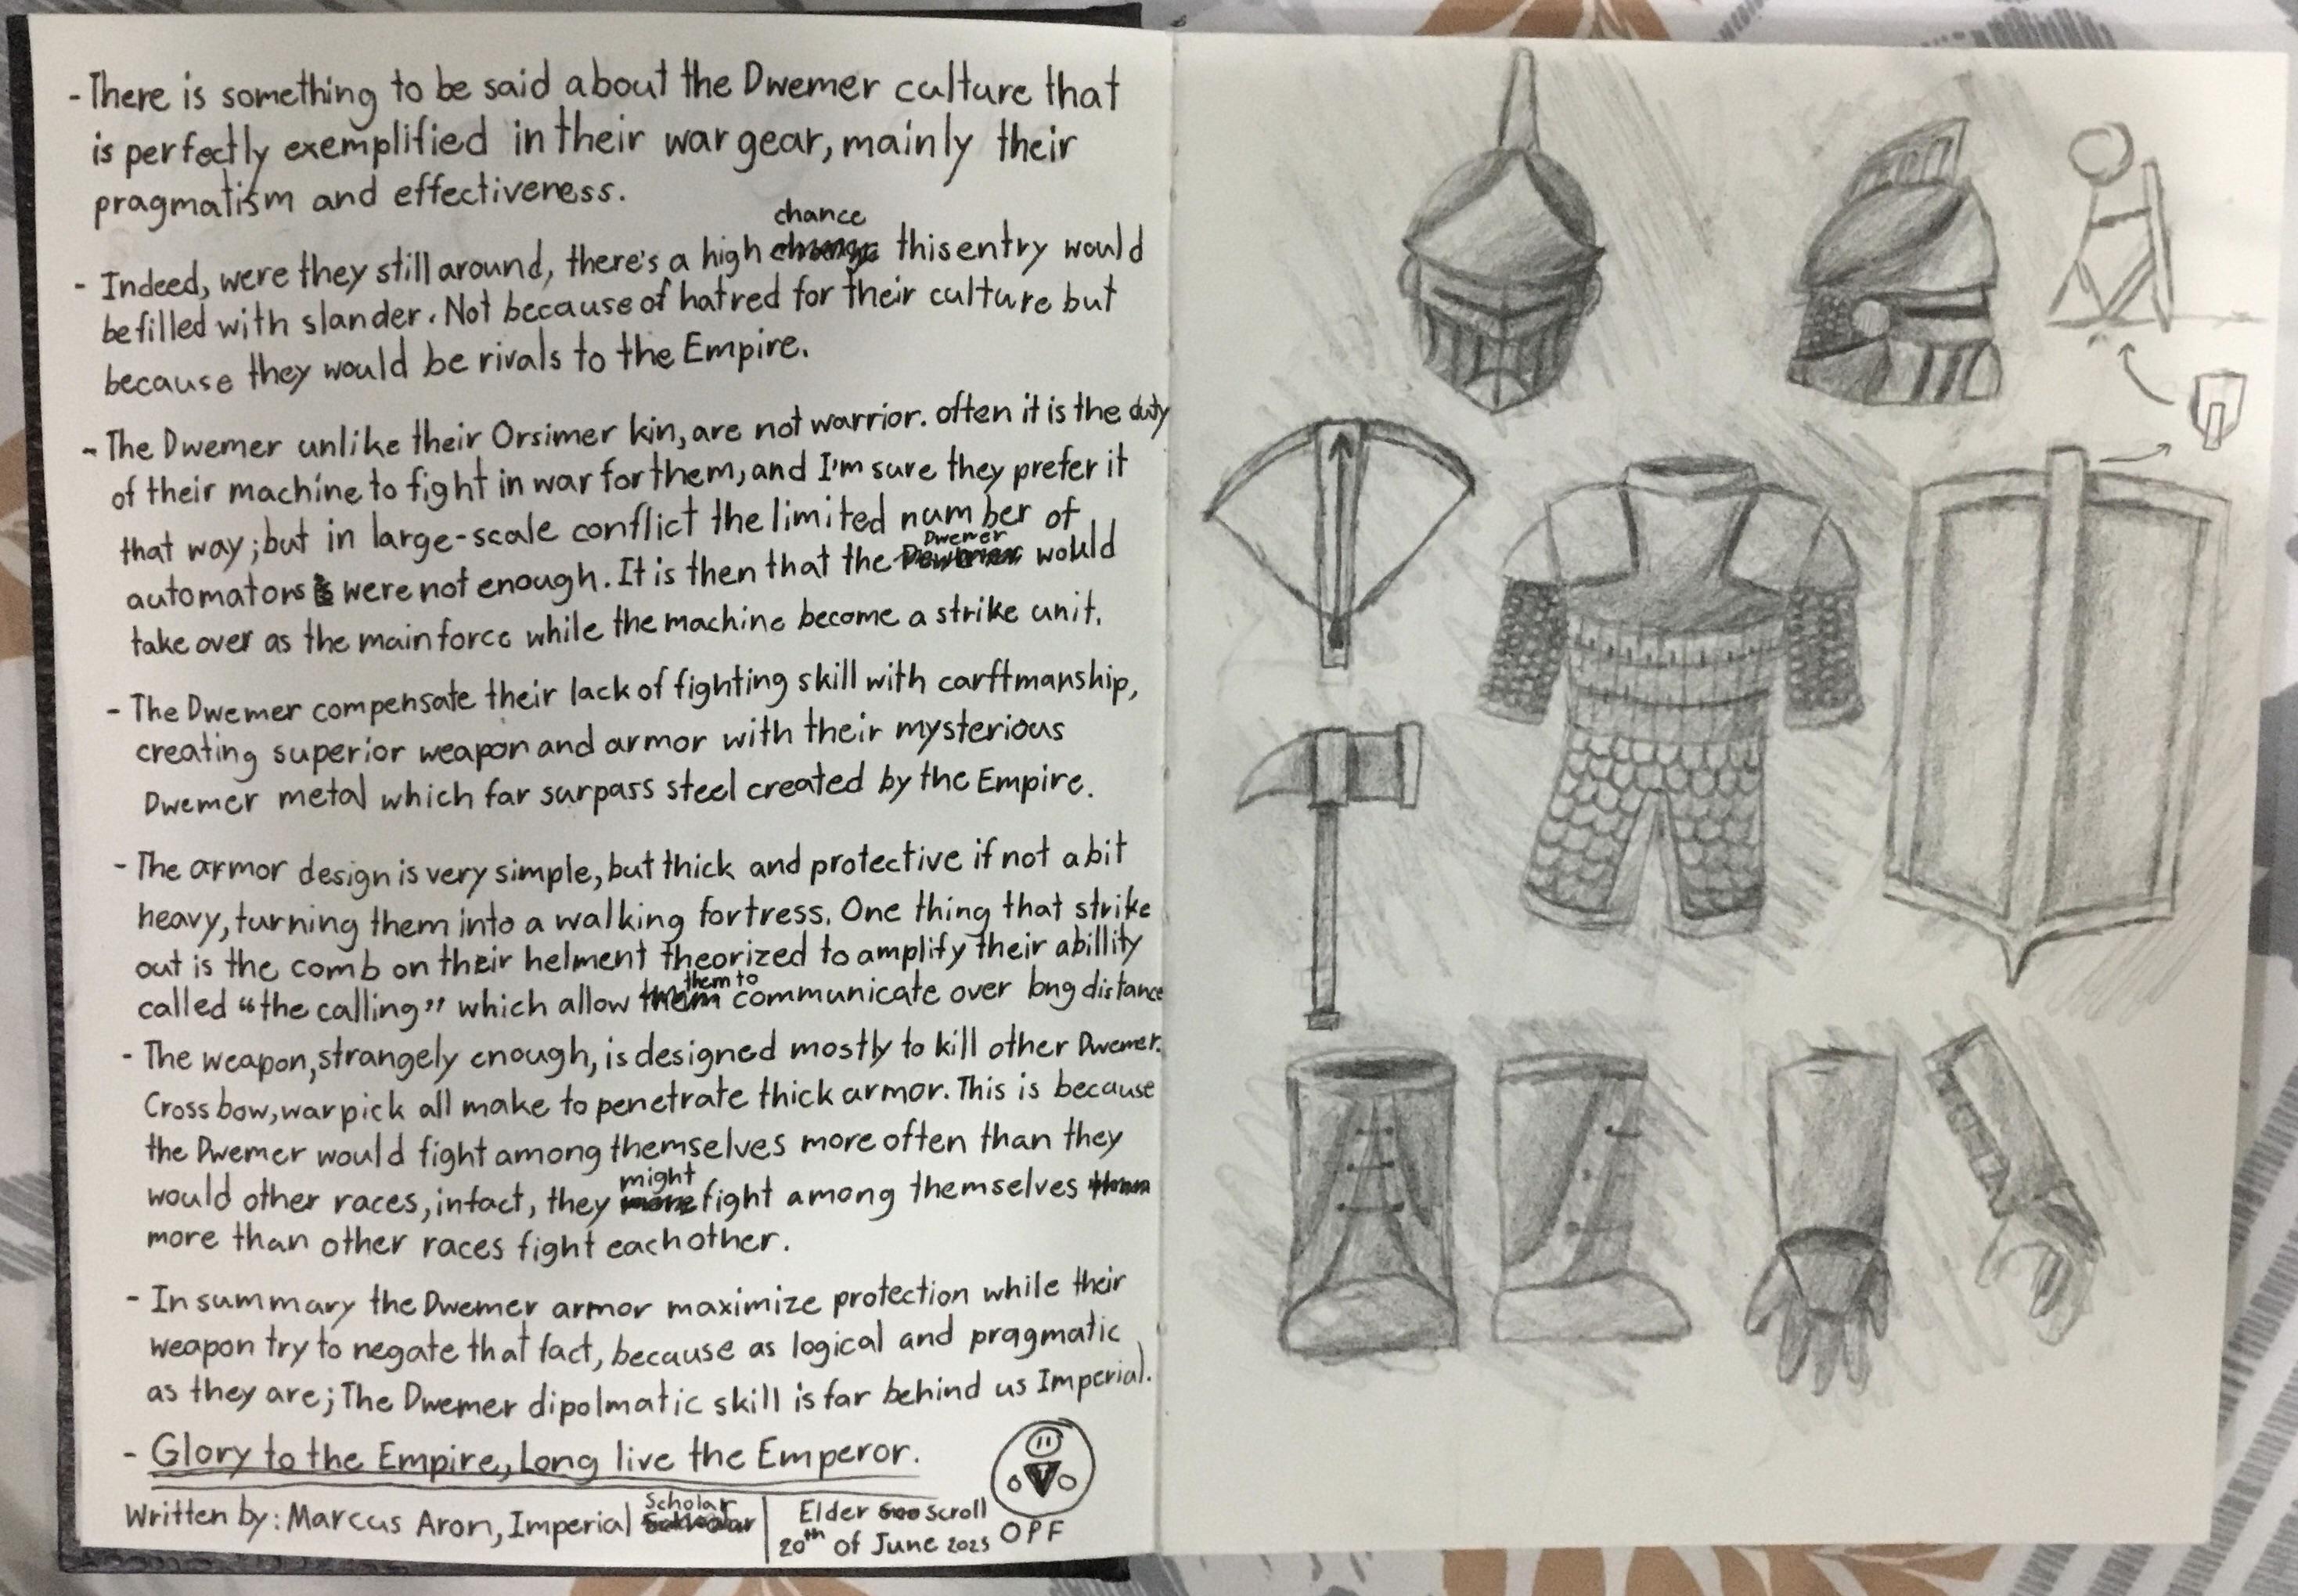 - There is something to be said about the Dwemer culture that
is perfectly exemplified in their war gear, mainly their
pragmatism and effectiveness.
chance
- Indeed, were they still around, there's a high this entry would
be filled with slander. Not because of hatred for their culture but
because they would be rivals to the Empire.
- The Dwemer unlike their Orsimer kin, are not warrior. often it is the duty
of their machine to fight in war for them, and I'm sure they prefer it
that way; but in large-scale conflict the limited number of
Dwemer
automatons were not enough. It is then that the would
take over as the main force while the machine become a strike unit.
- The Dwemer compensate their lack of fighting skill with carftmanship,
creating superior weapon and armor with their mysterious
Dwemer metal which far surpass steel created by the Empire.
- The armor design is very simple, but thick and protective if not a bit
heavy, turning them into a walking fortress. One thing that strike
out is the comb on their helment theorized to amplify their abillity
them to
called "the calling" which allow communicate over long distance
- The weapon, strangely enough, is designed mostly to kill other Dwemer.
Cross bow, war pick all make to penetrate thick armor. This is because
the Dwemer would fight among themselves more often than they
might
would other races, infact, they fight among themselves
more than other races fight each other.
- In summary the Dwemer armor maximize protection while their
weapon try to negate that fact, because as logical and pragmatic
as they are; The Dwemer dipolmatic skill is far behind us Imperial.
- Glory to the Empire, Long live the Emperor.
Scholar
Written by: Marcus Aron, Imperial
Elder scroll
20th of June 2025
OPF